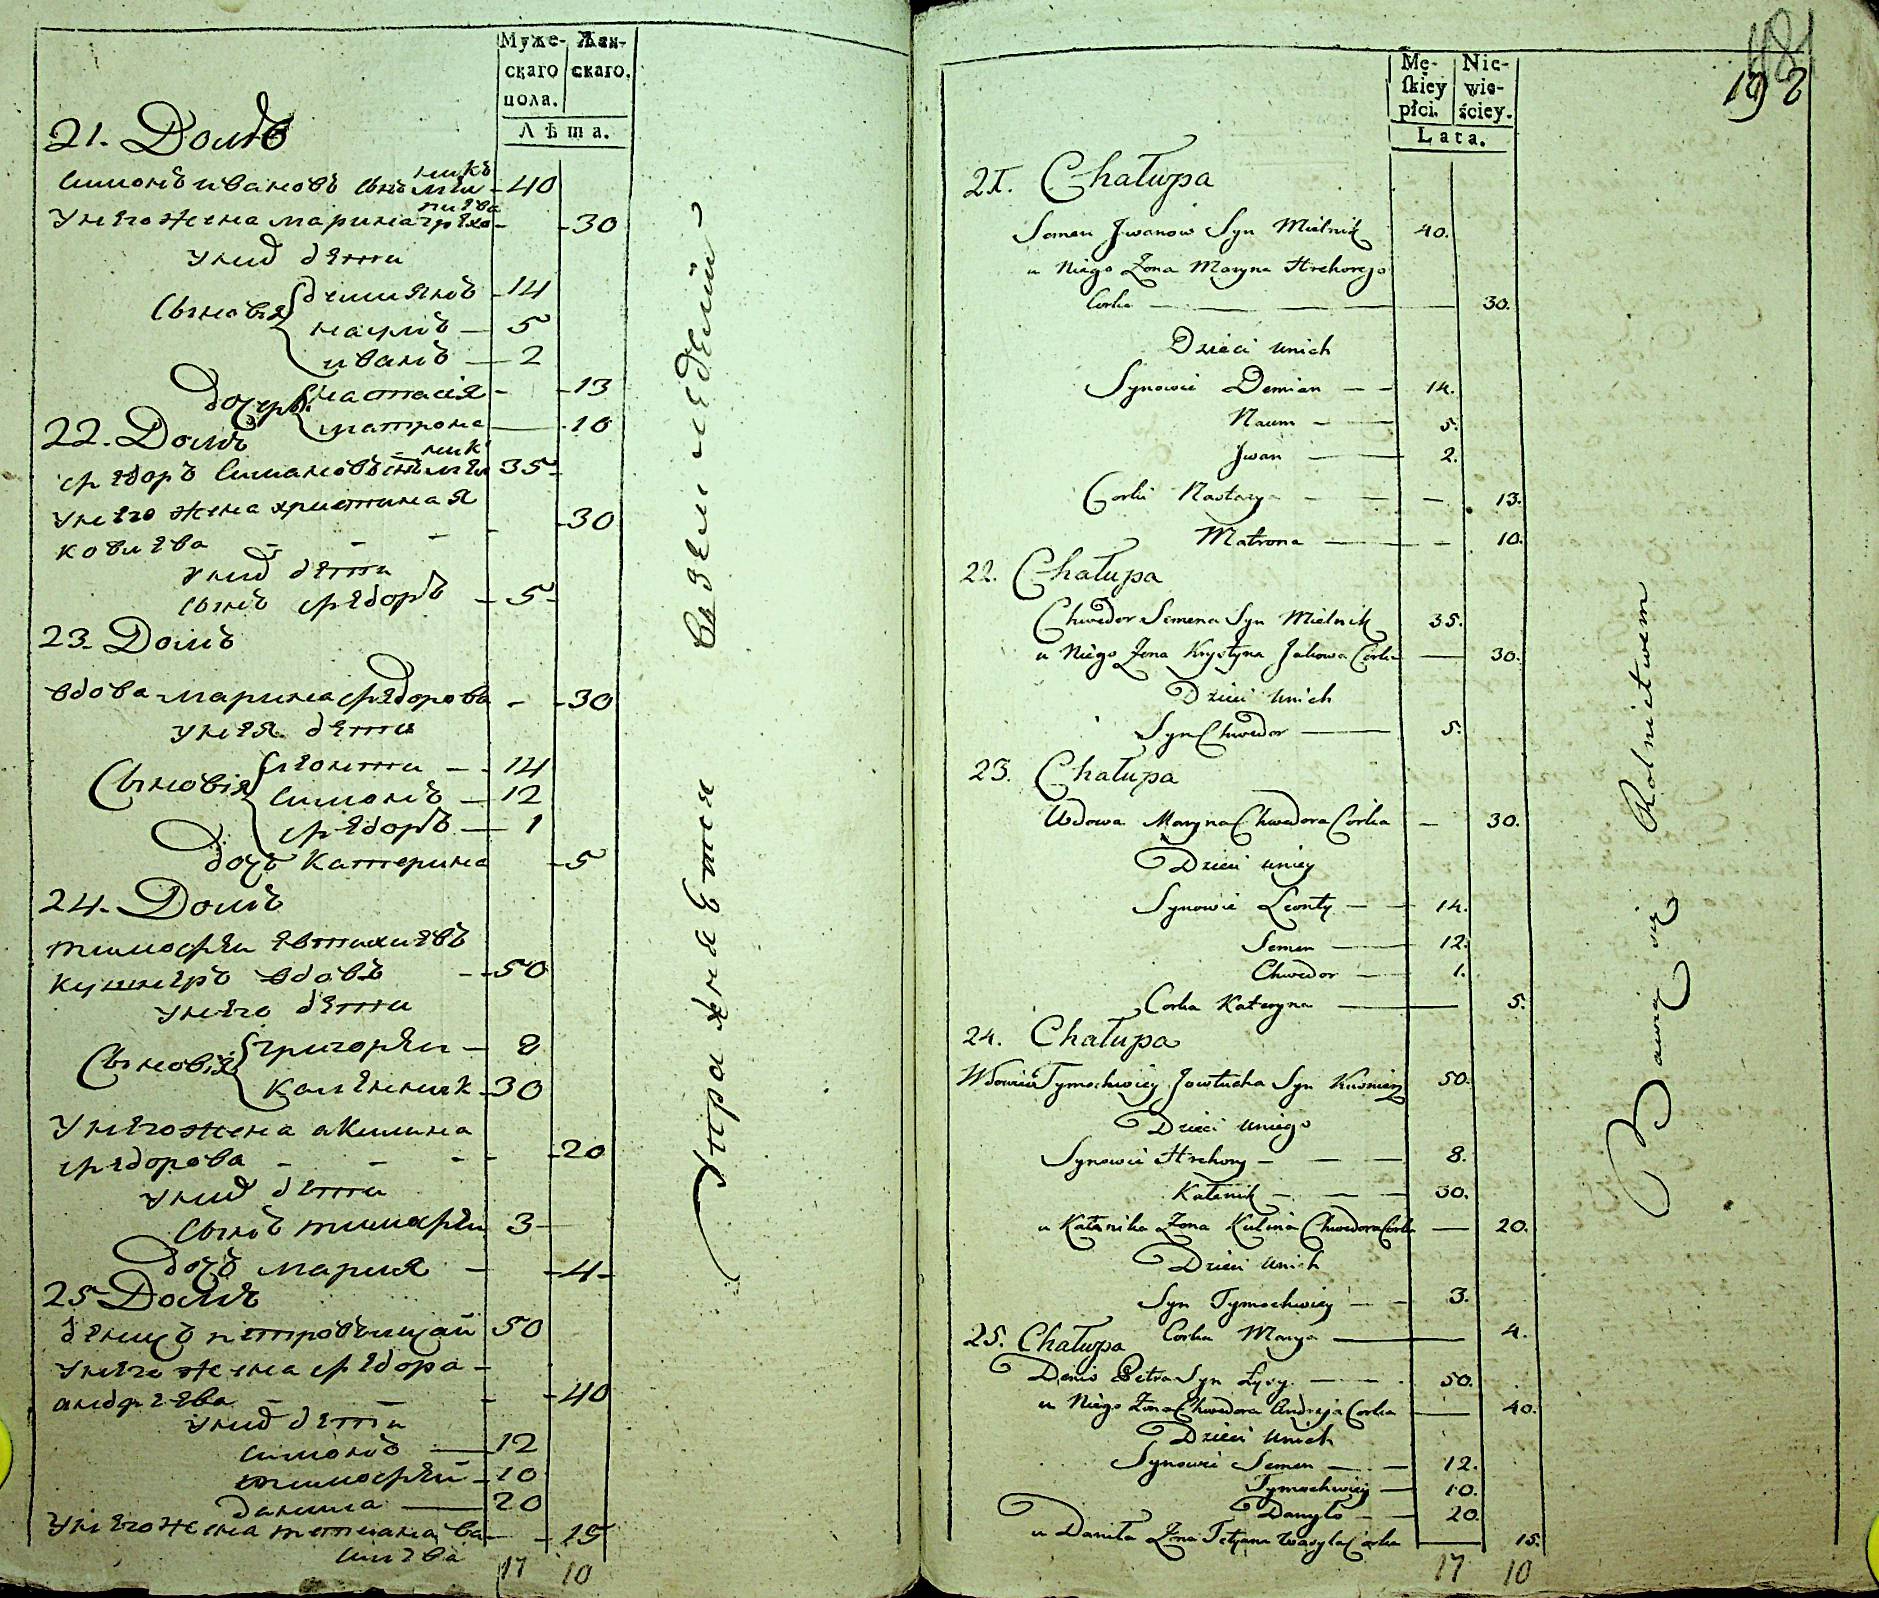 Муже-
скаго
пола.
Жен-
скаго.
Лѣта.
21. Домъ
Симонъ Ивановъ Сынъ Мѣлникъ 40
У него жена марина грѣхопиѣва - 30
У них дѣти
Сыновія дѣмиянъ 14
наумъ — 5
иванъ — 2
дочерѣ настасія - 13
матрона — 10
22. Домъ
Ѳѣдоръ Симановъ Сынъ Мѣлник 35
У него жена христина я
ковлѣва - - - - 30
У них дѣти
Сынъ Ѳѣдоръ - 5
23. Домъ
вдова марина Ѳѣдорова - 30
У нея дѣти
Сыновія лѣонти - 14
Симонъ — 12
Ѳѣдоръ — 1
дочъ катерина - 5
24. Домъ
тимоѳѣи ѣвтихиѣвъ
кушнѣръ вдовъ - 50
У него дѣти
Сыновія григорѣи - 8
калѣнник - 30
У него жена акилина
Ѳѣдорова - - - - 20
У них дѣти
Сынъ тимоѳѣи 3
дочъ мария - 4
25 Домъ
дѣнисъ пѣтровъ лисай 50
У него жена Ѳѣдора -
андрѣѣва - - 40
У них дѣти
Симонъ — 12
тимоѳѣй - 10
данила — 20
У него жена тетиана ва- 15
силѣва
17 10
Упражняѣтся Вкзѣмлѣдѣлии
481
192
Mę-
skiey
płci.
Nie-
wie-
ściey.
Lata.
21. Chałupa
Semen Jwanow Syn Mielnik 40.
u Niego Żona Maryna Hrehorego
Corka — 30.
Dzieci unich
Synowie Demian — — 14.
Naum — — 5.
Jwan — 2.
Corki Nastazya — — — 13.
Matrona — — 10.
22. Chałupa
Chwedor Semena Syn Mielnik 35.
u Niego Żona Krystyna Jakowa Corka — 30.
Dzieci unich
Syn Chwedor — 5.
23. Chałupa
Wdowa Maryna Chwedora Corka — 30.
Dzieci uniey
Synowie Leonty — — 14.
Semen — 12.
Chwedor — 1.
Corka Kateryna — 5.
24. Chałupa
Wdowiec Tymochwiey Jowtucha Syn Kusnierz 50.
Dzieci uniego
Synowie Hrehory — — — 8.
Kalenik — — — 30.
u Kalenika Żona Kulina Chwedora Corka — 20.
Dzieci unich
Syn Tymochwiey — — 3.
Corka Marya — 4.
25. Chałupa
Denis Petra Syn Łysy. — — 50.
u Niego Żona Chwedora Andreja Corka — 40.
Dzieci unich
Synowie Semen — — 12.
Tymochwiey — 10.
Danyło — — 20.
u Daniła Żona Tetyana Wasyla Corka — 15.
17 10
Bawią się Rolnictwem